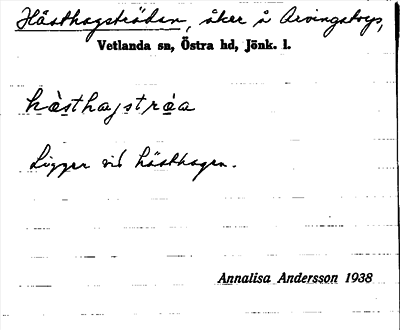 Hästhagsträdan, åker å Arvingstorp,
Vetlanda sn, Östra hd, Jönk. l.
hàsthagstrəa
Ligger vid hästhagen.
Annalisa Andersson 1938